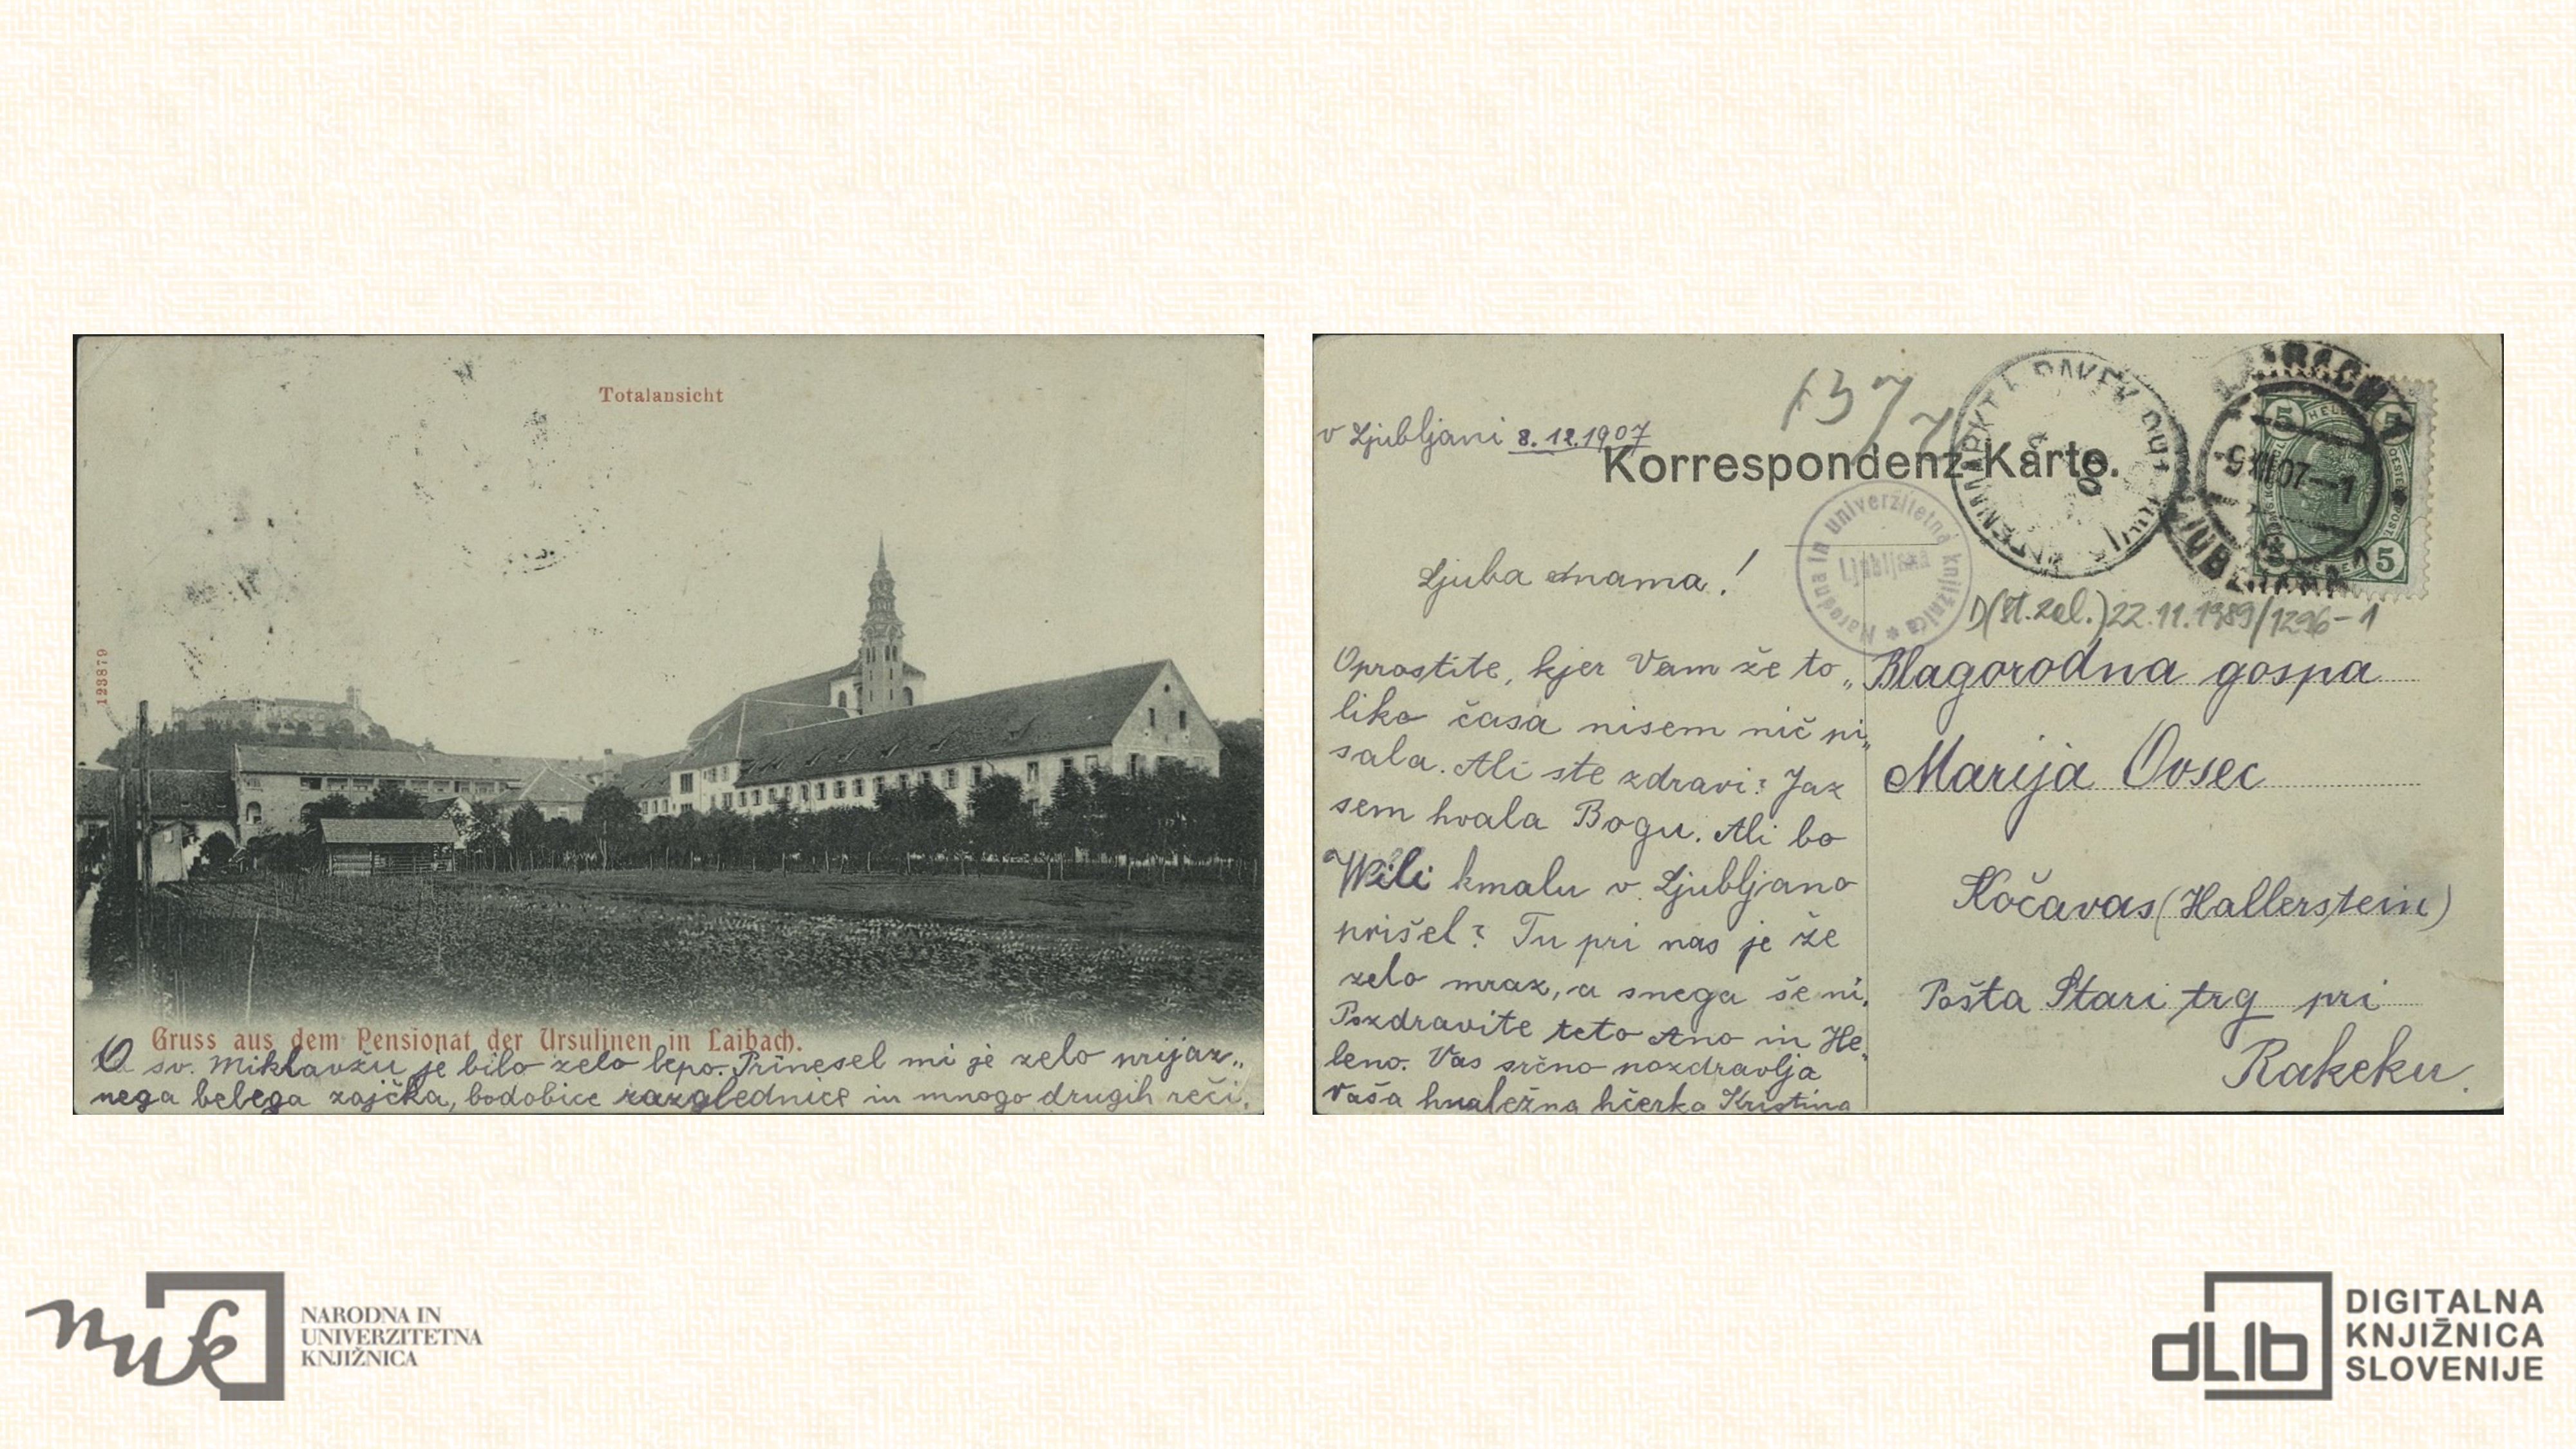 Totalansicht
123879
Gruss aus dem Pensionat der Ursulinen in Laibach.
O sv. Miklavžu je bilo zelo lepo. Prinesel mi je zelo prijaz„
nega belega zajčka, bodobice razglednice in mnogo drugih reči.
137
v Ljubljani 8.12.1907
Korrespondenz-Karte.
LAIBACH
9 XII 07 - 1
LJUBLJANA
5 HELLER 5
5
Narodna in univerzitetna knjižnica
Ljubljana
D(st.zal.)22.11.1989/1296-1
Ljuba mama!
Oprostite, kjer Vam že to„
liko časa nisem nič pi„
sala. Ali ste zdravi? Jaz
sem hvala Bogu. Ali bo
Wili kmalu v Ljubljano
prišel? Tu pri nas je že
zelo mraz, a snega še ni.
Pozdravite teto Ano in He„
leno. Vas srčno pozdravlja
Vaša hvaležna hčerka Kristina
Blagorodna gospa
Marija Ovsec
Kočavas (Hallerstein)
Pošta Stari trg pri
Rakeku.
nuk
NARODNA IN
UNIVERZITETNA
KNJIŽNICA
dLib
DIGITALNA
KNJIŽNICA
SLOVENIJE